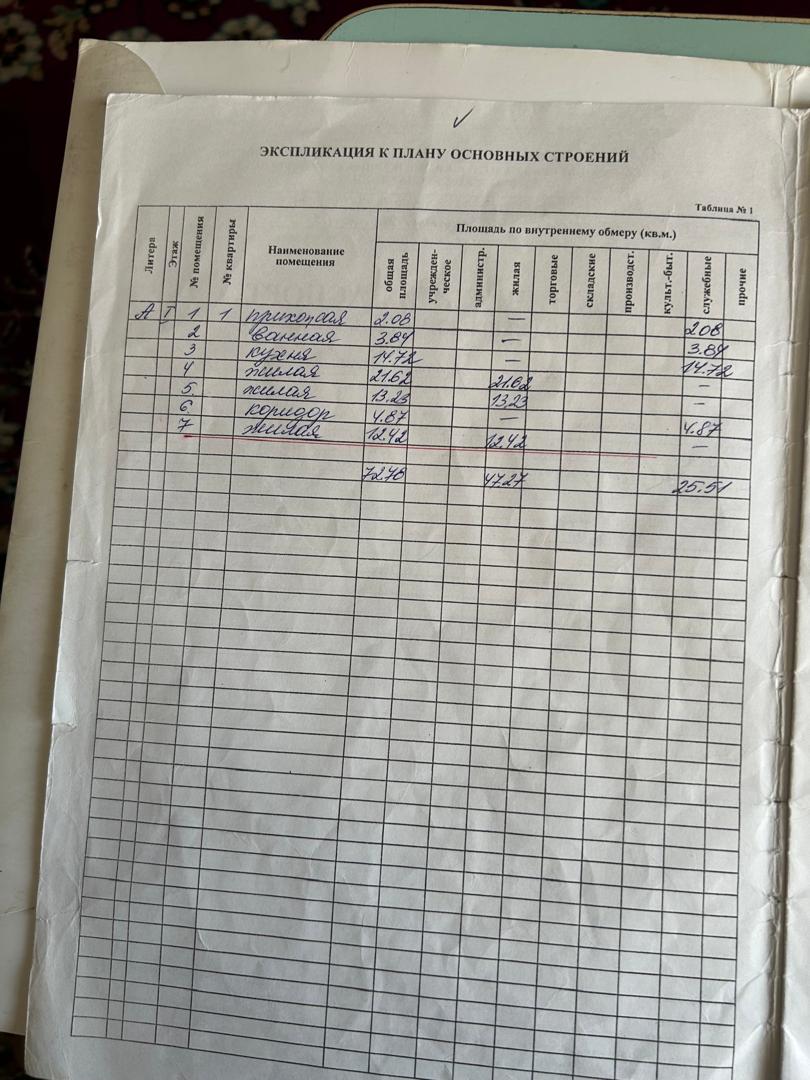 ЭКСПЛИКАЦИЯ К ПЛАНУ ОСНОВНЫХ СТРОЕНИЙ
Таблица № 1
Литера Этаж № помещения № квартиры Наименование помещения Площадь по внутреннему обмеру (кв.м.)
общая площадь учрежден-ческое администр. жилая торговые складские производст. культ.-быт. служебные прочие
А I 1 1 прихожая 2.08 — 2.08
2 ванная 3.84 — 3.84
3 кухня 14.72 — 14.72
4 жилая 21.62 21.62 —
5 жилая 13.23 13.23 —
6 коридор 4.87 — 4.87
7 жилая 12.42 12.42 —
72.78 47.27 25.51